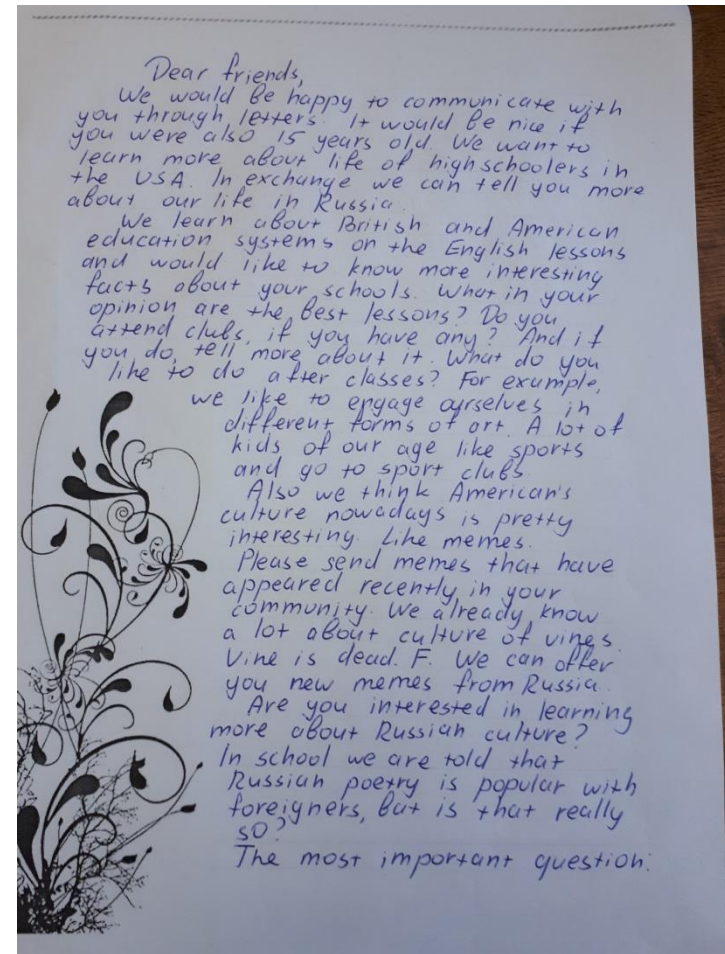 Dear friends,
We would be happy to communicate with
you through letters. It would be nice if
you were also 15 years old. We want to
learn more about life of highschoolers in
the USA. In exchange we can tell you more
about our life in Russia.
We learn about British and American
education systems on the English lessons
and would like to know more interesting
facts about your schools. What in your
opinion are the best lessons? Do you
attend clubs, if you have any? And if
you do, tell more about it. What do you
like to do after classes? For example,
we like to engage ourselves in
different forms of art. A lot of
kids of our age like sports
and go to sport clubs.
Also we think American's
culture nowadays is pretty
interesting. Like memes.
Please send memes that have
appeared recently in your
community. We already know
a lot about culture of vines.
Vine is dead. F. We can offer
you new memes from Russia.
Are you interested in learning
more about Russian culture?
In school we are told that
Russian poetry is popular with
foreigners, but is that really
so?
The most important question: